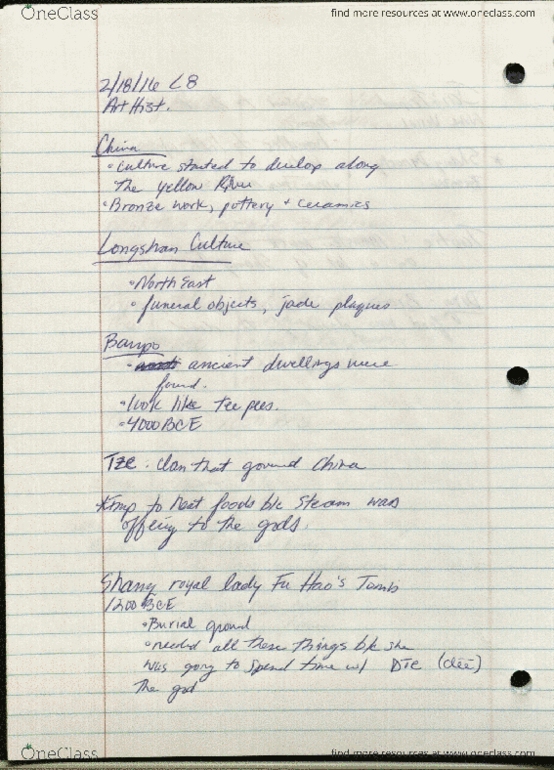 OneClass
find more resources at www.oneclass.com
2/18/16 L8
Art Hist.
China
• Culture started to develop along
The Yellow River
• Bronze work, pottery + ceramics
Longshan Culture
• North East
• funeral objects, jade plaques
Banpo
• ancient dwellings were
found.
• look like tee pees.
• 4000 BCE
Tze · clan that governd China
*Imp to heat foods b/c steam was
offering to the gods.
Shang royal lady Fu Hao's Tomb
1200 BCE
• Burial ground
• needed all these things b/c she
was going to spend time w/ DTE (dēē)
The god
OneClass
find more resources at www.oneclass.com